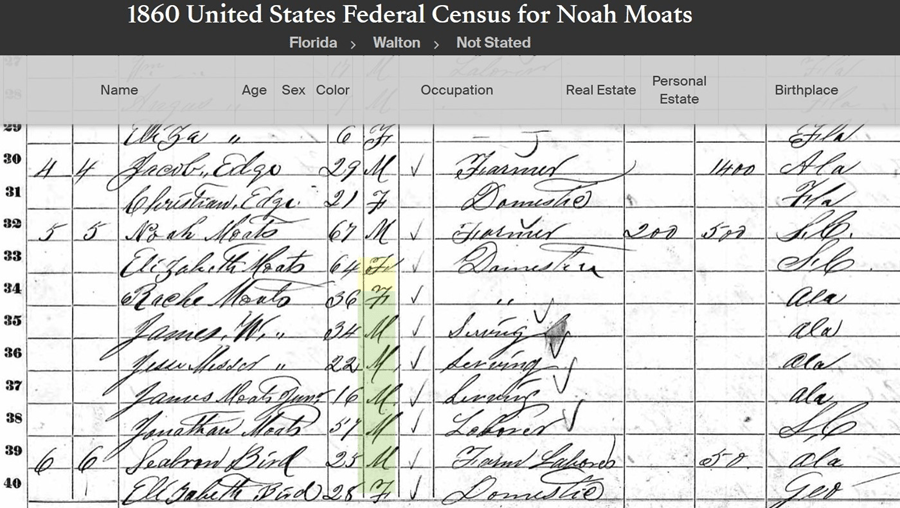 1860 United States Federal Census for Noah Moats
Florida > Walton > Not Stated
Name Age Sex Color Occupation Real Estate Personal Estate Birthplace
29 Eliza " 6 F Fla
30 4 4 Jacob, Edge 29 M ✓ Farmer 1400 Ala
31 Christian, Edge 21 F Domestic Fla
32 5 5 Noah Moats 67 M ✓ Farmer 200 500 S.C.
33 Elizabeth Moats 64 F ✓ Domestic S.C
34 Rache Moats 36 F ✓ " Ala
35 James, W. " 34 M ✓ Serving Ala
36 Jesse Messer " 22 M ✓ Serving Ala
37 James Moats Junr 16 M ✓ Serving Ala
38 Jonathan Moats 57 M ✓ Laborer S.C
39 6 6 Seabron Bird 25 M ✓ Farm Laborer 50. Ala
40 Elizabeth Bird 28 F ✓ Domestic Geo